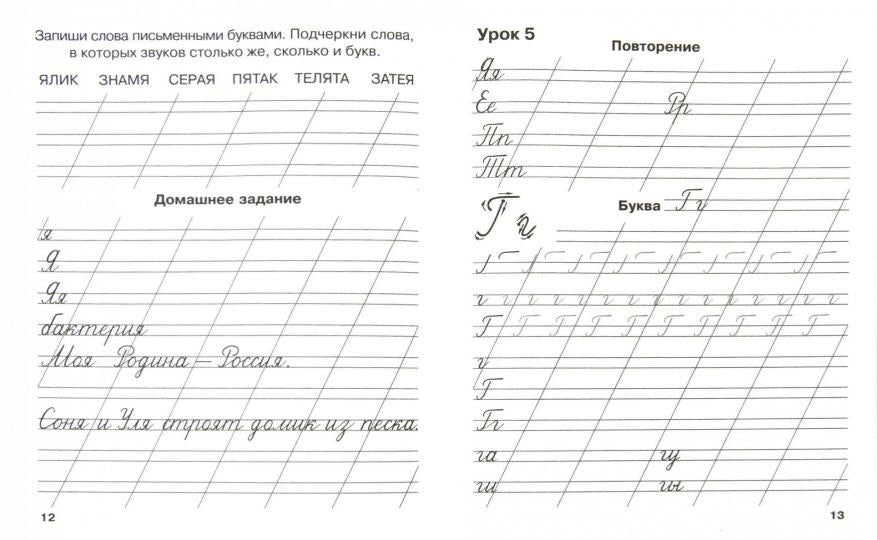 Запиши слова письменными буквами. Подчеркни слова,
в которых звуков столько же, сколько и букв.
ЯЛИК ЗНАМЯ СЕРАЯ ПЯТАК ТЕЛЯТА ЗАТЕЯ
Домашнее задание
я
Я
Яя
бактерия
Моя Родина — Россия.
Соня и Уля строят домик из песка.
12
Урок 5
Повторение
Яя
Ее Рр
Пп
Тт
Буква Гг
Г г
г г г г г г г г г г г г г г
Г Г Г Г Г Г Г Г Г
г
Г
Гг
га гу
ги гы
13